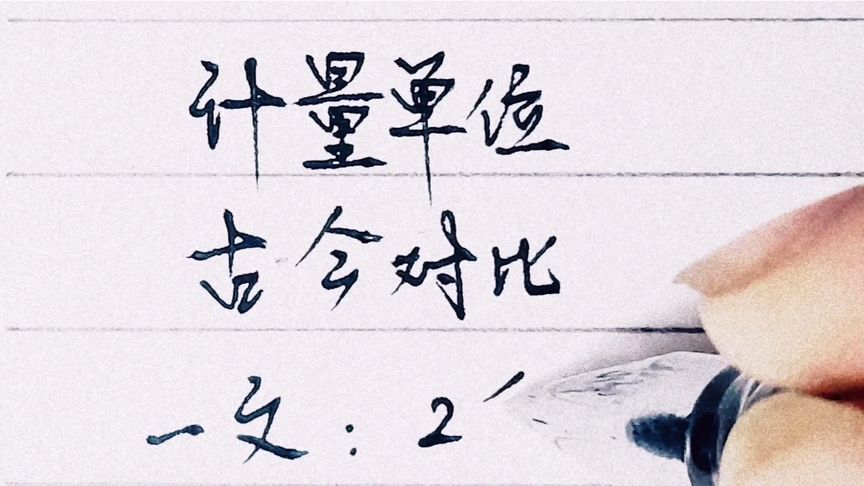 计量单位
古今对比
一文：2